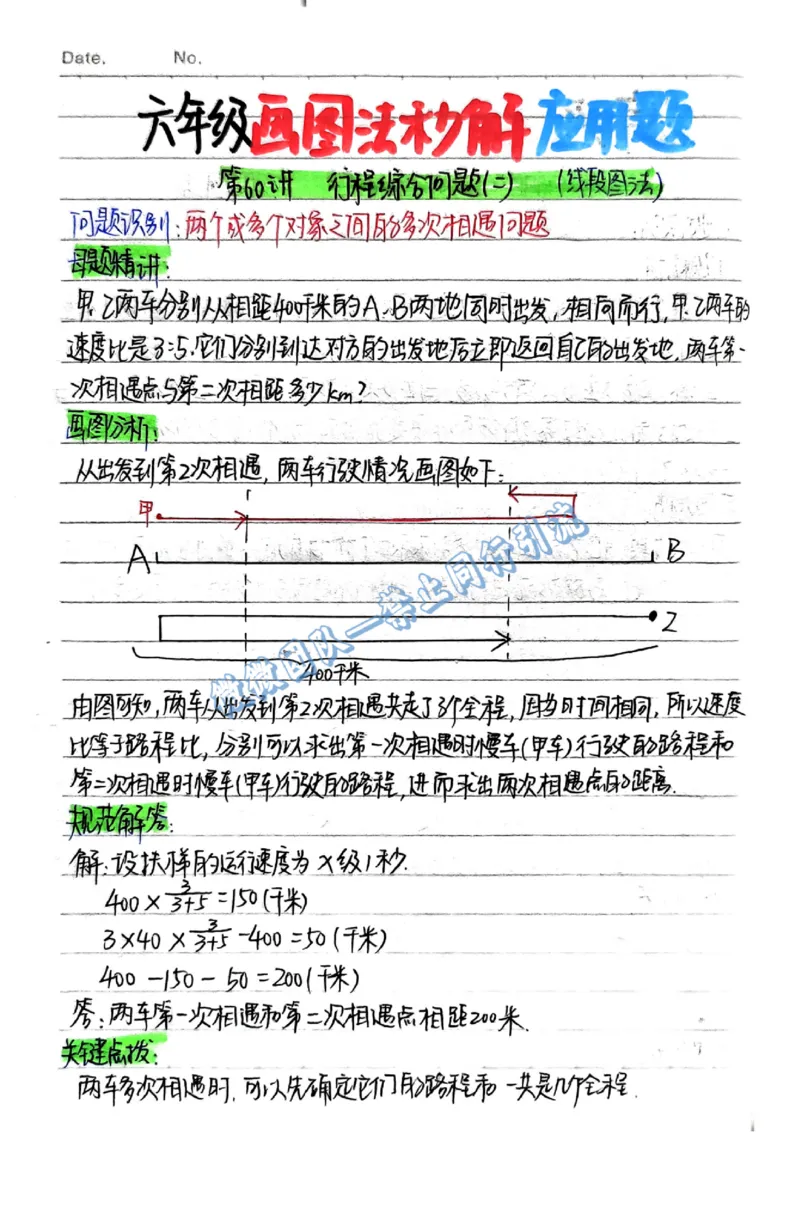 Date.    No.
六年级画图法秒解应用题
第60讲 行程综合问题(二) (线段图法)
问题识别:两个或多个对象之间的多次相遇问题
母题精讲:
甲.乙两车分别从相距400千米的A.B两地同时出发,相向而行,甲.乙两车的
速度比是3:5.它们分别到达对方的出发地后立即返回自己的出发地.两车第一
次相遇点与第二次相距多少km?
画图分析:
从出发到第2次相遇,两车行驶情况画图如下:
甲
A B
乙
400千米
微微团队—禁止同行引流
由图可知,两车从出发到第2次相遇共走了3个全程,因为时间相同,所以速度
比等于路程比,分别可以求出第一次相遇时慢车(甲车)行驶的路程和
第二次相遇时慢车(甲车)行驶的路程,进而求出两次相遇点的距离.
规范解答:
解:设扶梯的运行速度为x级/秒.
400×3/(3+5)=150(千米)
3×40×3/(3+5)-400=50(千米)
400-150-50=200(千米)
答:两车第一次相遇和第二次相遇点相距200米.
关键点拨:
两车多次相遇时.可以先确定它们的路程和一共是几个全程.